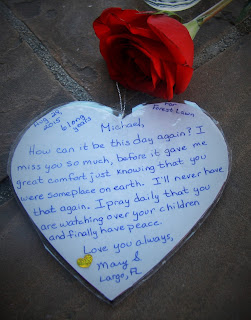 Aug 29,
2015
6 long
years
For
Forest Lawn
Michael,
How can it be this day again? I
miss you so much, before it gave me
great comfort just knowing that you
were someplace on earth. I'll never have
that again. I pray daily that you
are watching over your children
and finally have peace.
Love you always,
Mary S
Largo, FL